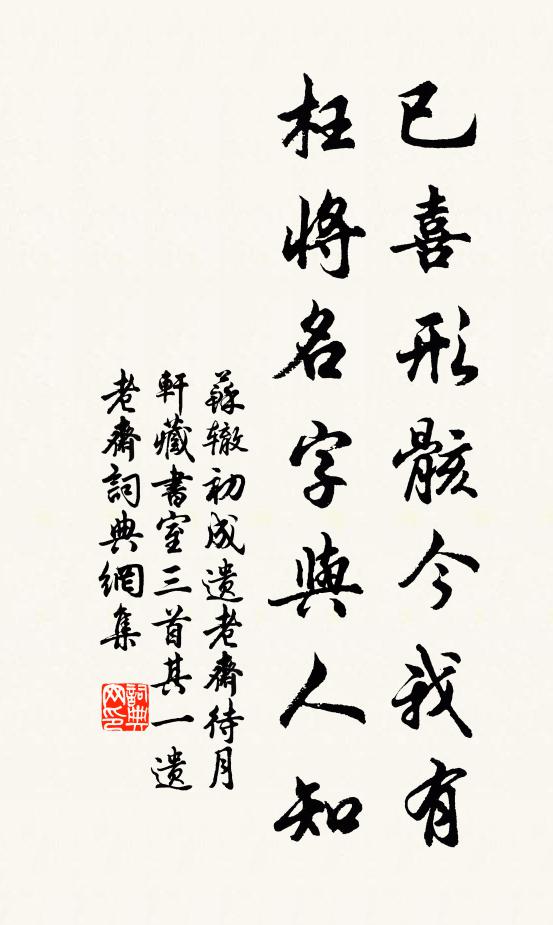 已喜形骸今我有
枉將名字與人知
蘇辙初成遺老齋待月
軒藏書室三首其一遺
老齋詞典網集
詞典网印